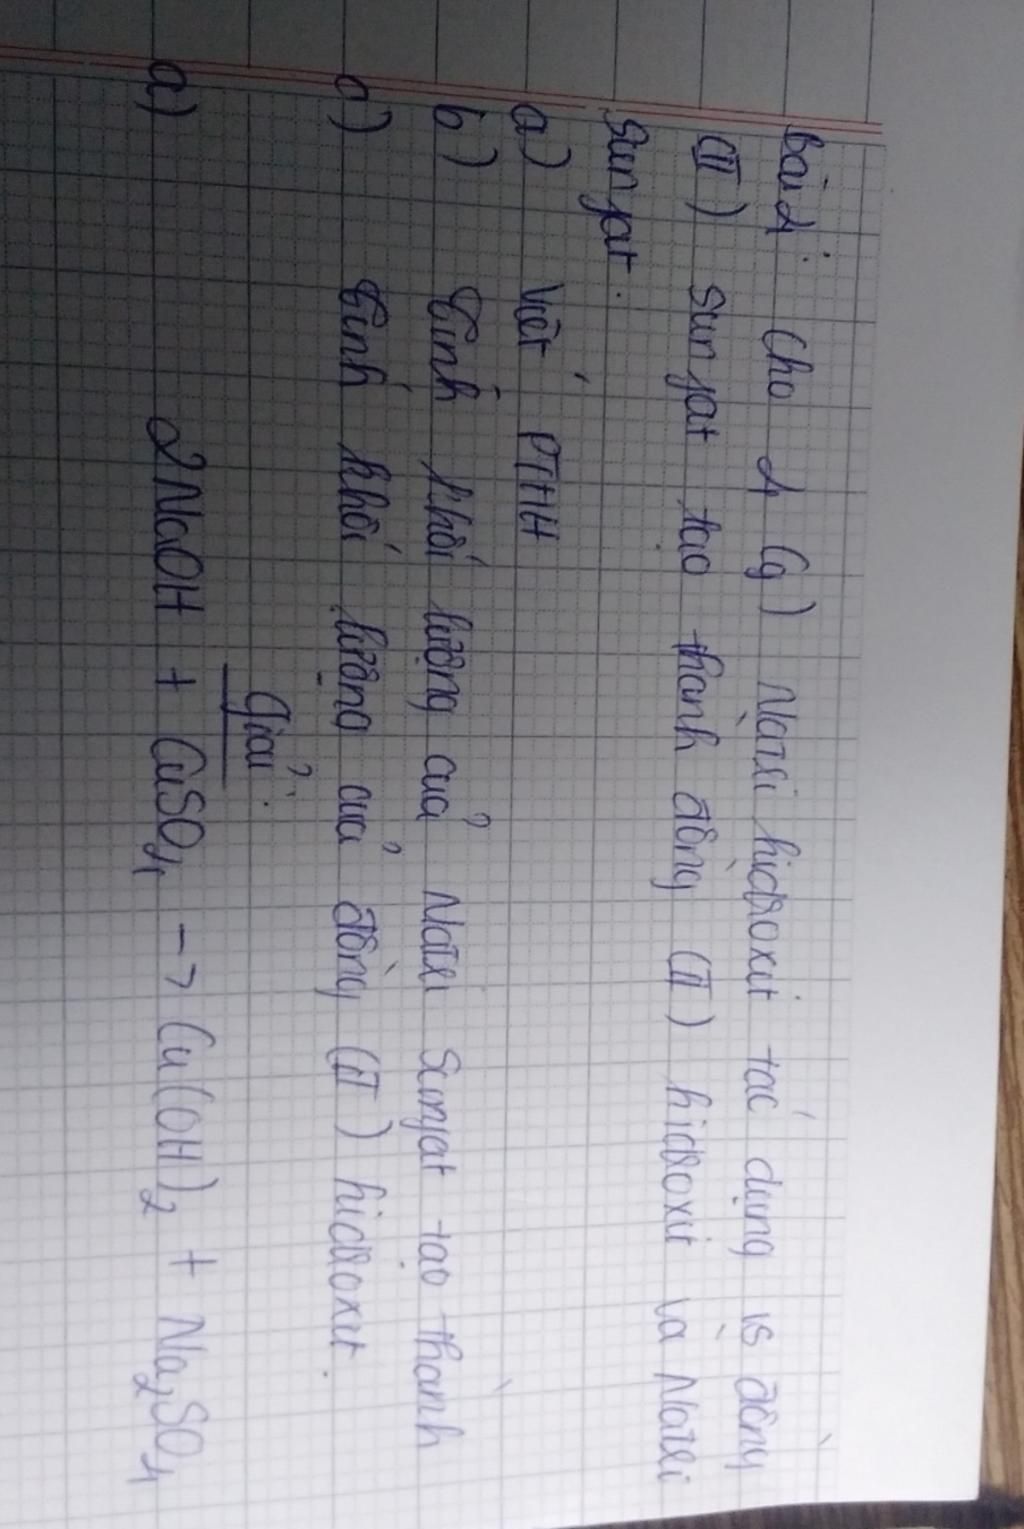 Bài 4: Cho 4 (g) Natri hiđroxit tác dụng is đồng
(II) sunfat tạo thành đồng (II) hiđroxit và Natri
sunfat.
a) Viết PTHH
b) Tính khối lượng của Natri sunfat tạo thành
c) Tính khối lượng của đồng (II) hiđroxit.
Giải:
a) 2NaOH + CuSO4 -> Cu(OH)2 + Na2SO4